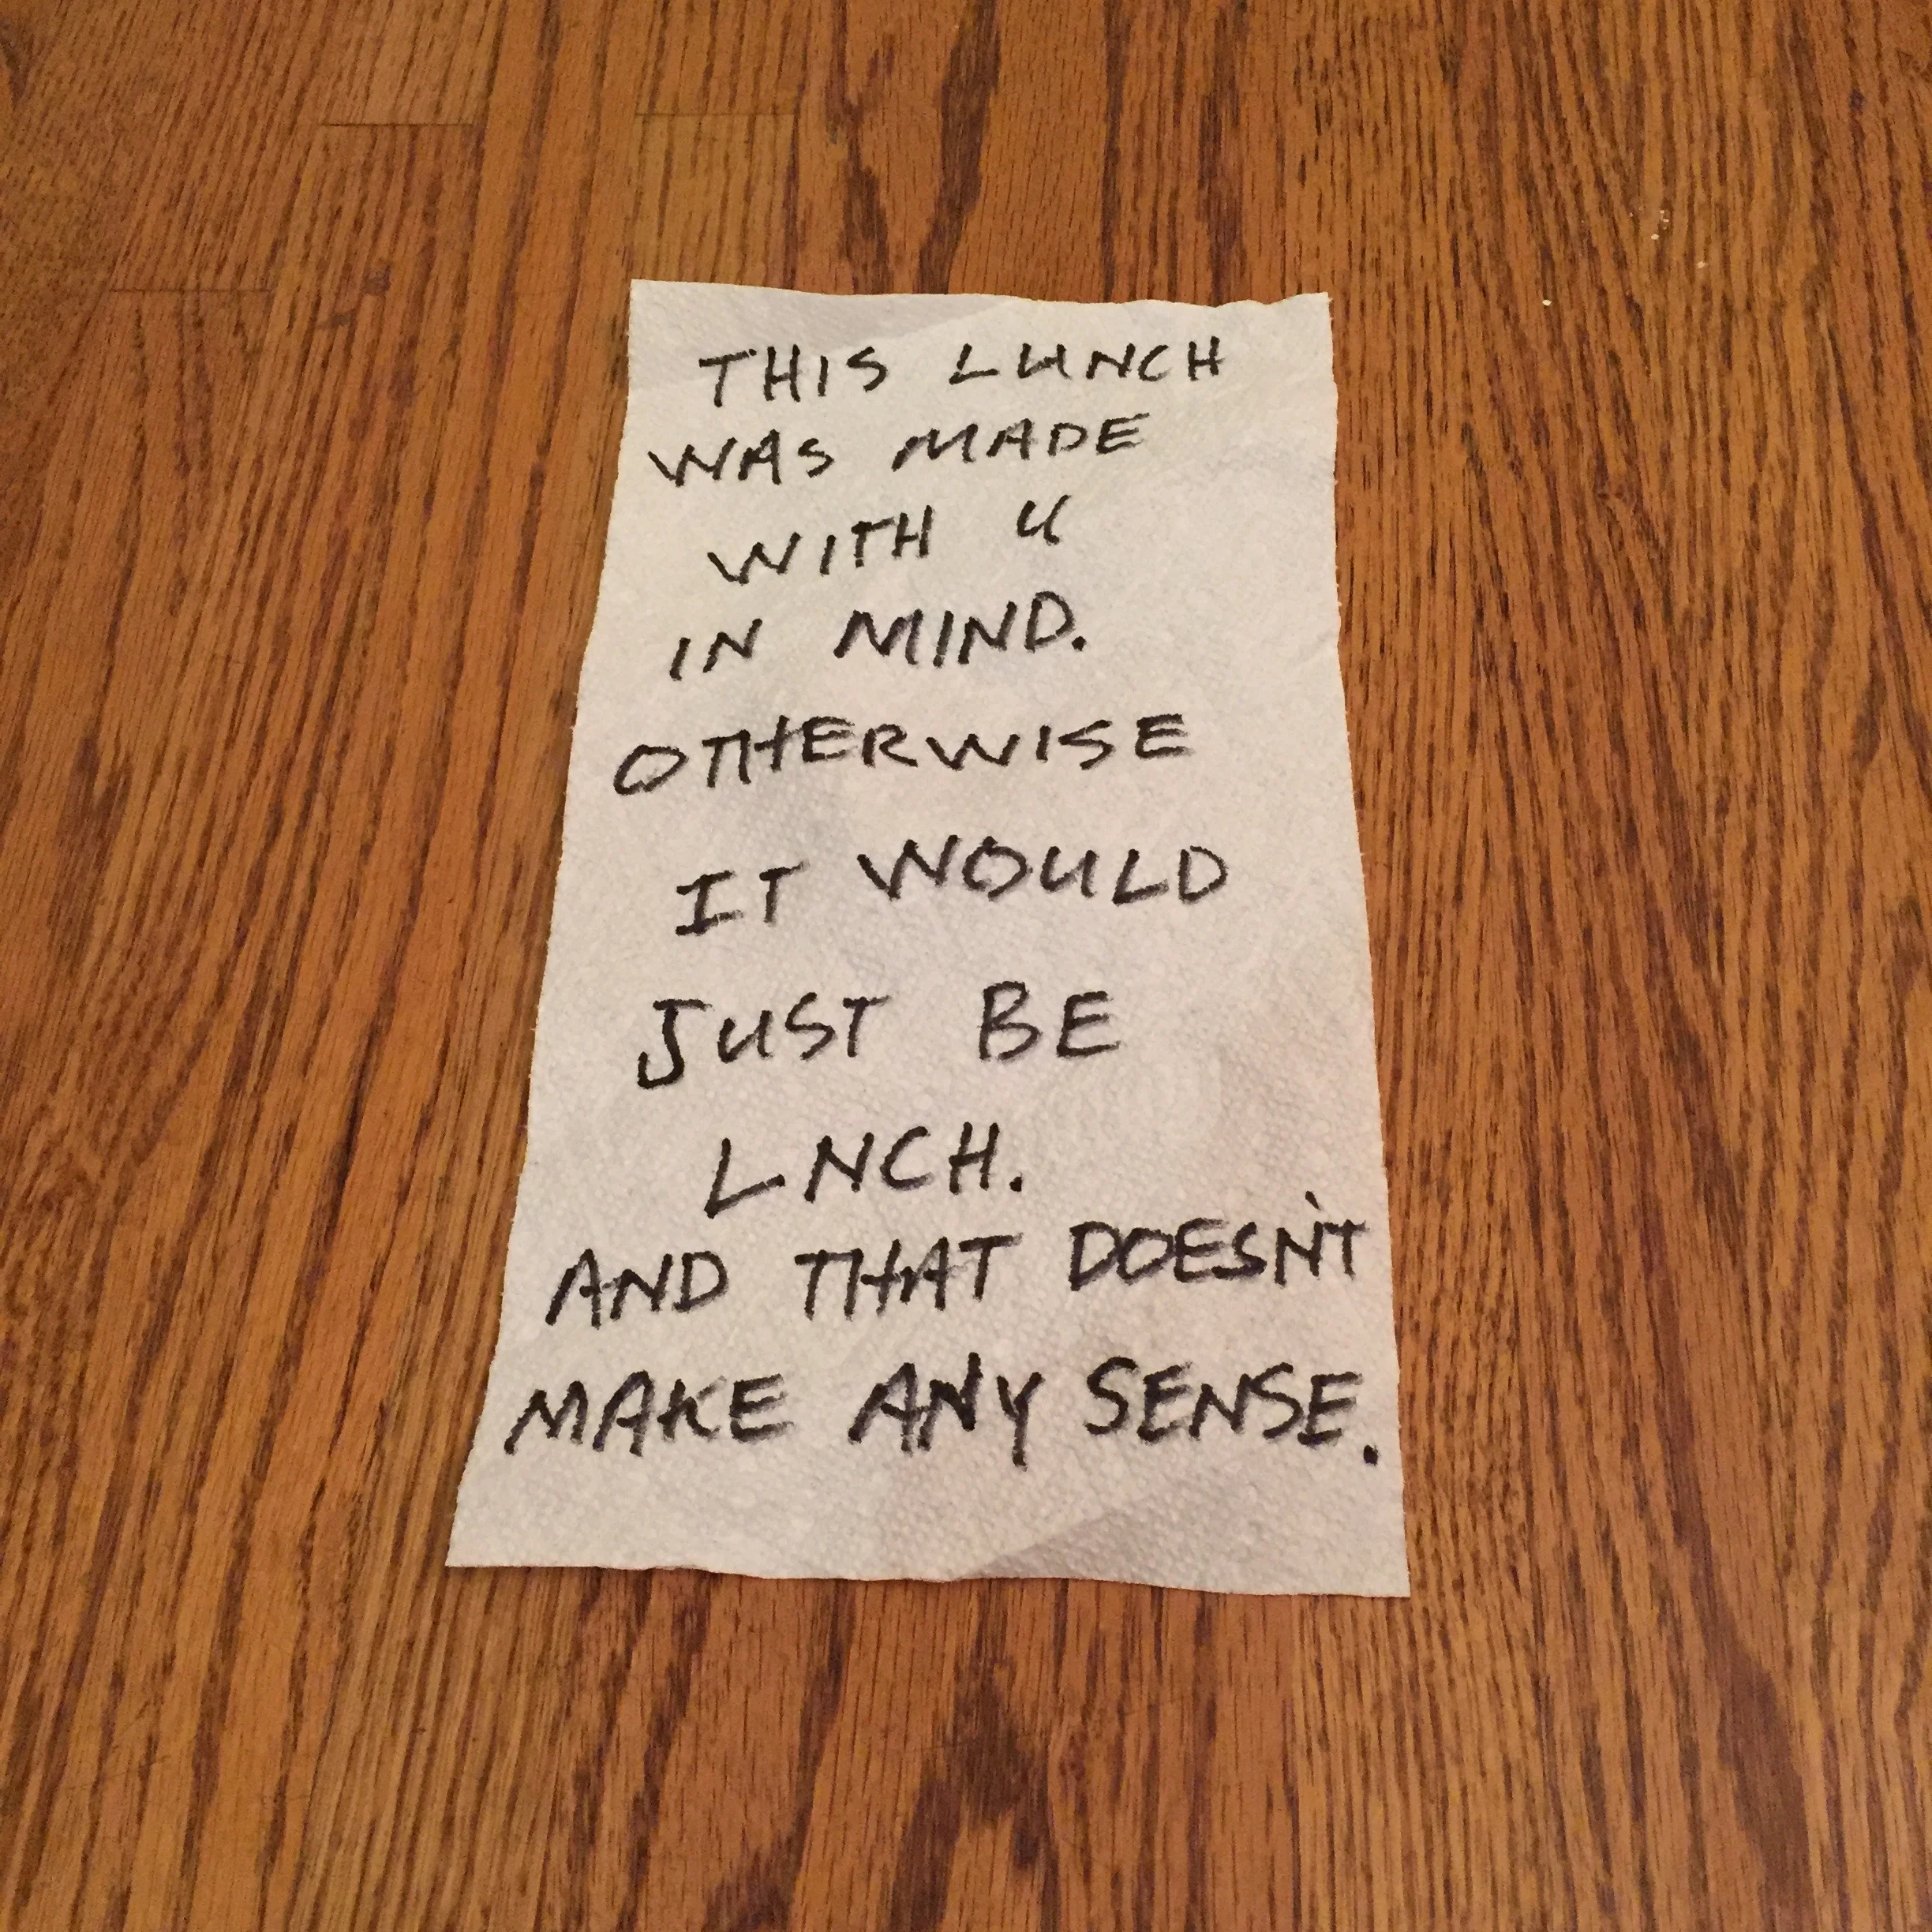 THIS LUNCH
WAS MADE
WITH U
IN MIND.
OTHERWISE
IT WOULD
JUST BE
LNCH.
AND THAT DOESN'T
MAKE ANY SENSE.